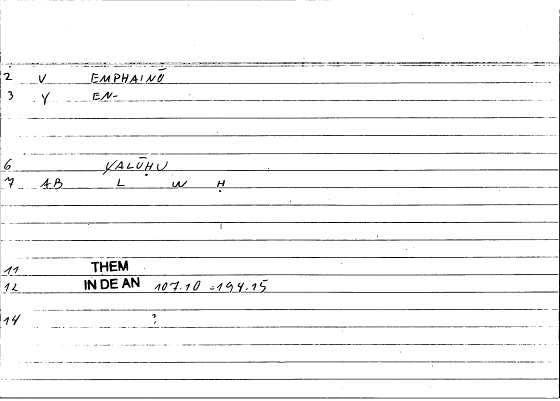 2 V EMPHAINŌ
3 Y EN-
6 YALŪḤU
7 AB L W Ḥ
11 THEM
12 IN DE AN 107.10 = 194.15
14 ?